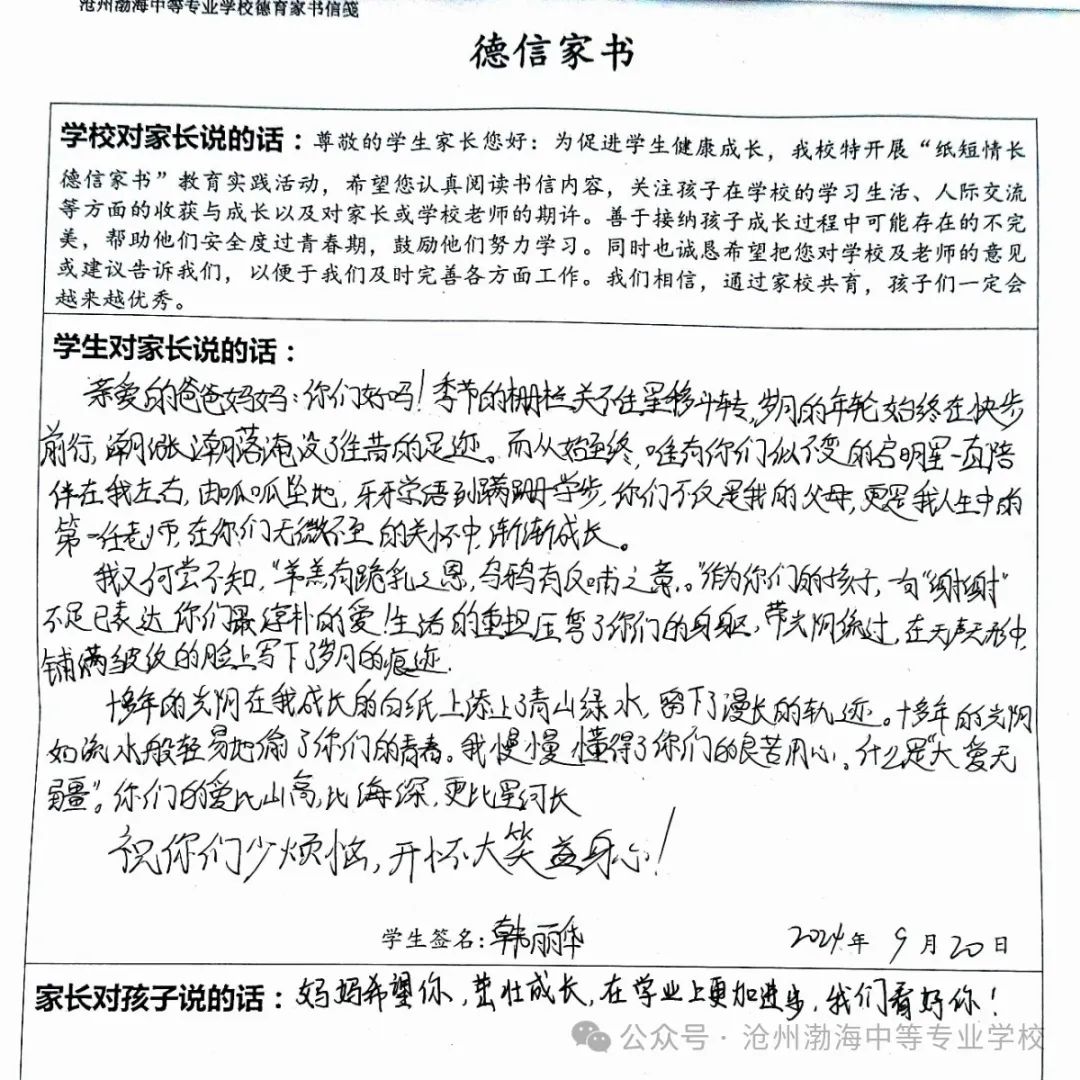 沧州渤海中等专业学校德育家书信笺
德信家书
学校对家长说的话：尊敬的学生家长您好：为促进学生健康成长，我校特开展“纸短情长
德信家书”教育实践活动，希望您认真阅读书信内容，关注孩子在学校的学习生活、人际交流
等方面的收获与成长以及对家长或学校老师的期许。善于接纳孩子成长过程中可能存在的不完
美，帮助他们安全度过青春期，鼓励他们努力学习。同时也诚恳希望把您对学校及老师的意见
或建议告诉我们，以便于我们及时完善各方面工作。我们相信，通过家校共育，孩子们一定会
越来越优秀。
学生对家长说的话：
亲爱的爸爸妈妈：你们好吗！季节的栅栏关不住星移斗转，岁月的年轮始终在快步
前行，潮涨潮落淹没了往昔的足迹。而从始至终，唯有你们似不变的启明星一直陪
伴在我左右，由呱呱坠地，牙牙学语到蹒跚学步，你们不仅是我的父母，更是我人生中的
第一任老师，在你们无微不至的关怀中，渐渐成长。
我又何尝不知，“羊羔有跪乳之恩，乌鸦有反哺之意。”作为你们的孩子，一句“谢谢”
不足已表达你们最淳朴的爱！生活的重担压弯了你们的身躯，带光阴流过，在无声无形中，
铺满皱纹的脸上写下了岁月的痕迹.
十多年的光阴在我成长的白纸上添上了青山绿水，留下了漫长的轨迹。十多年的光阴
如流水般轻易地偷了你们的青春。我慢慢懂得了你们的良苦用心。什么是“大爱无
疆”。你们的爱比山高，比海深，更比星河长
祝你们少烦恼，开怀大笑益身心！
学生签名：韩丽华 2024年 9月20日
家长对孩子说的话：妈妈希望你，茁壮成长，在学业上更加进步，我们看好你！
公众号·沧州渤海中等专业学校